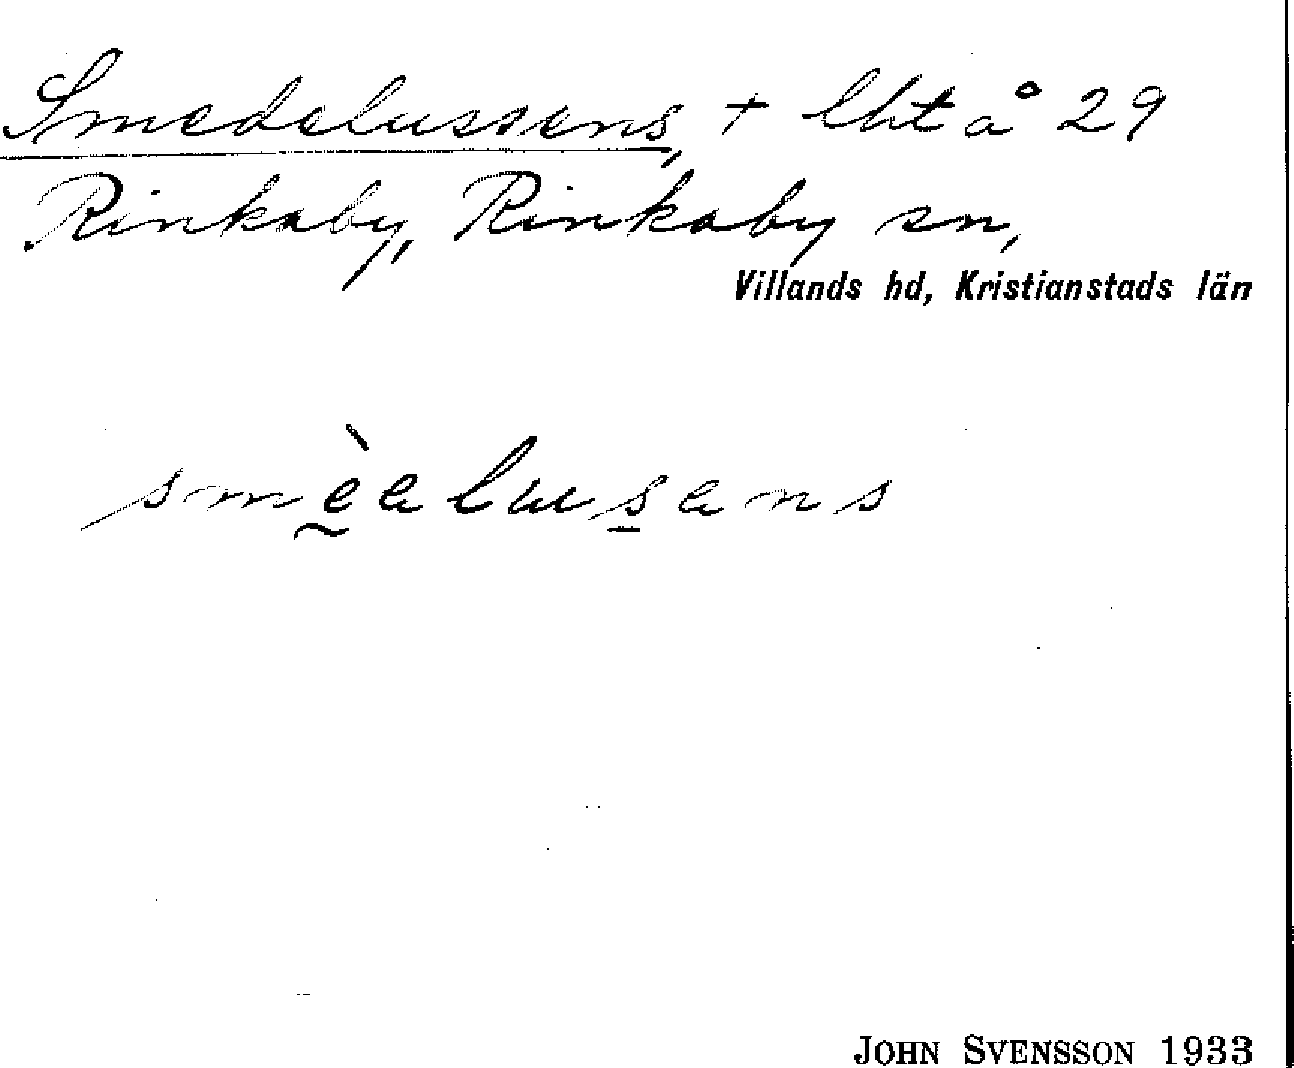 Smedelussens, + lht å 29
Rinkaby, Rinkaby sn,
Villands hd, Kristianstads län
smèalusans
JOHN SVENSSON 1933